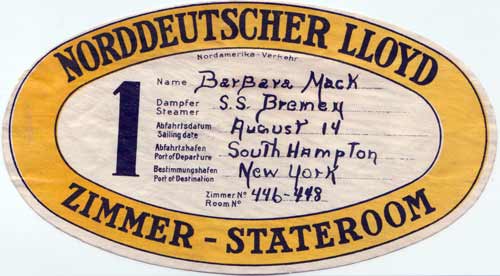 NORDDEUTSCHER LLOYD
Nordamerika-Verkehr
1
Name Barbara Mack
Dampfer
Steamer S.S. Bremen
Abfahrtsdatum
Sailing date August 14
Abfahrtshafen
Port of Departure SouthHampton
Bestimmungshafen
Port of Destination New York
Zimmer Nº
Room Nº 446-448
ZIMMER - STATEROOM